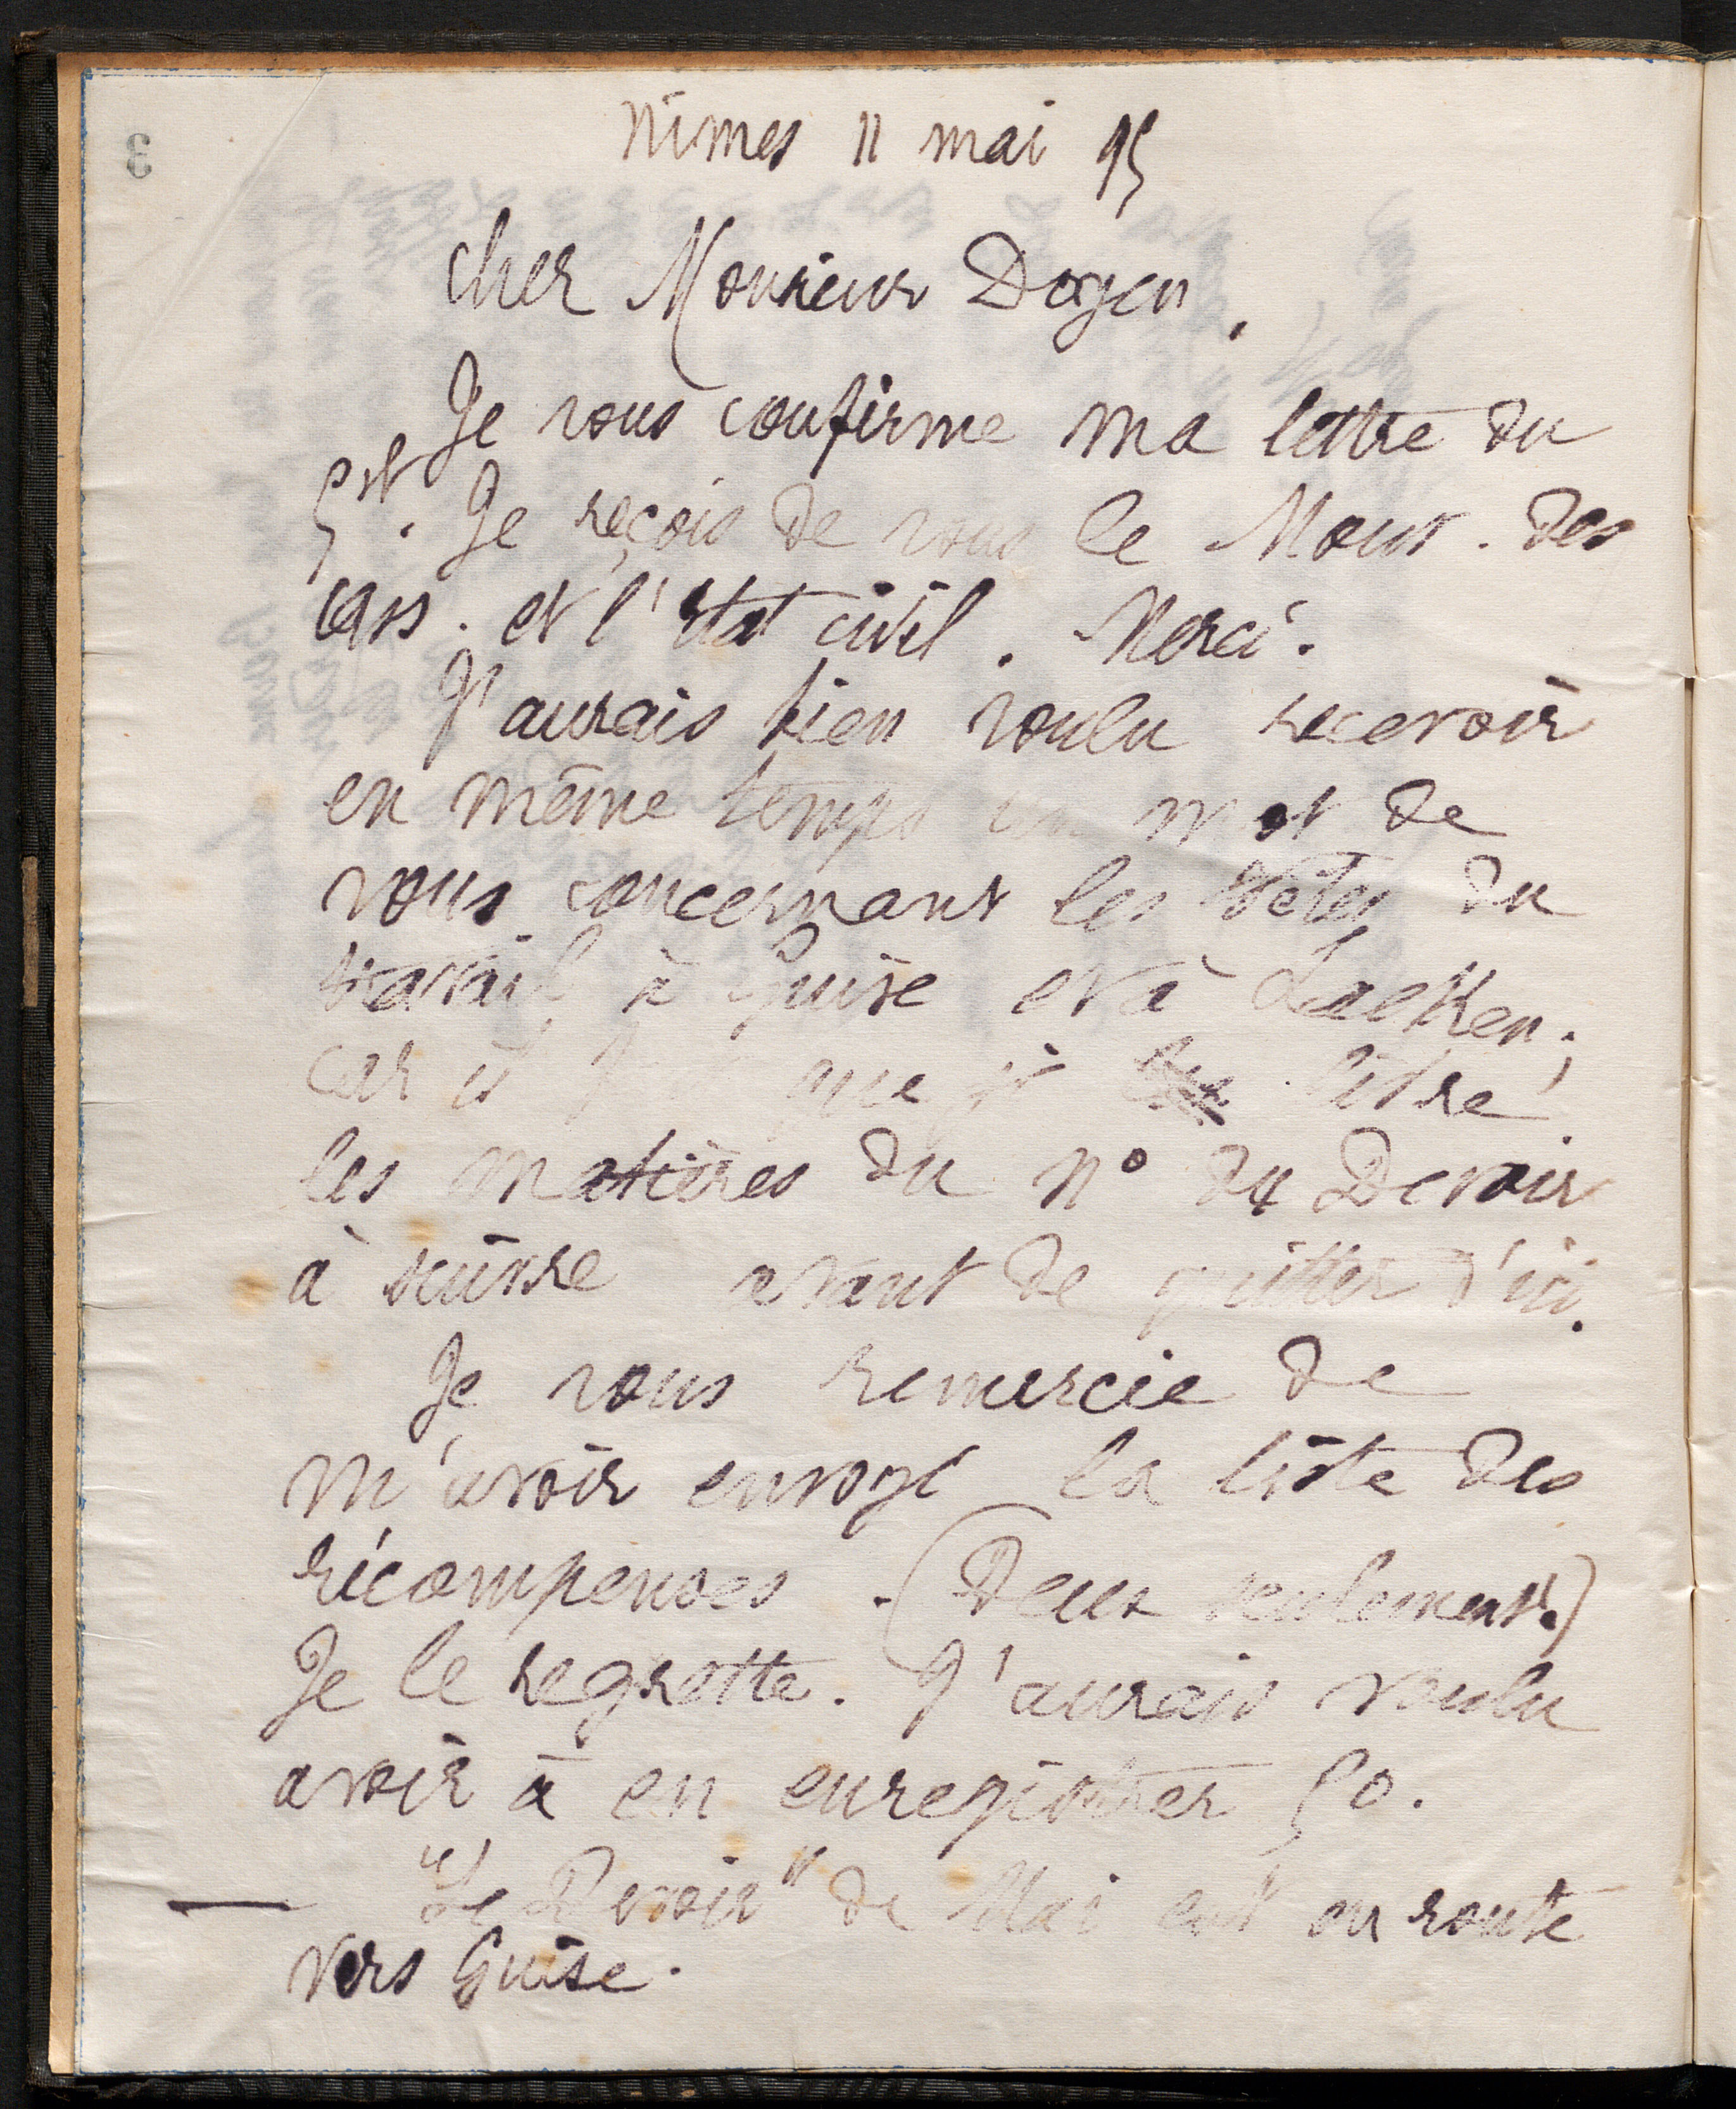 3
Nîmes 11 mai 95
Cher Monsieur Doyen,
Je vous confirme ma lettre du
5 ct. Je reçois de vous le Mouv. des
ass. et l'état civil. Merci.
J'aurais bien voulu recevoir
en même temps un mot de
vous concernant les fêtes du
travail à Guise et à Laeken;
car il que je livre
les matières du n° du Devoir
à suivre avant de quitter d'ici.
Je vous remercie de
m'avoir envoyé la liste des
récompenses. (Deux seulement.)
Je le regrette. J'aurais voulu
avoir à en enregistrer 50.
— "Le Devoir" de Mai est en route
vers Guise.